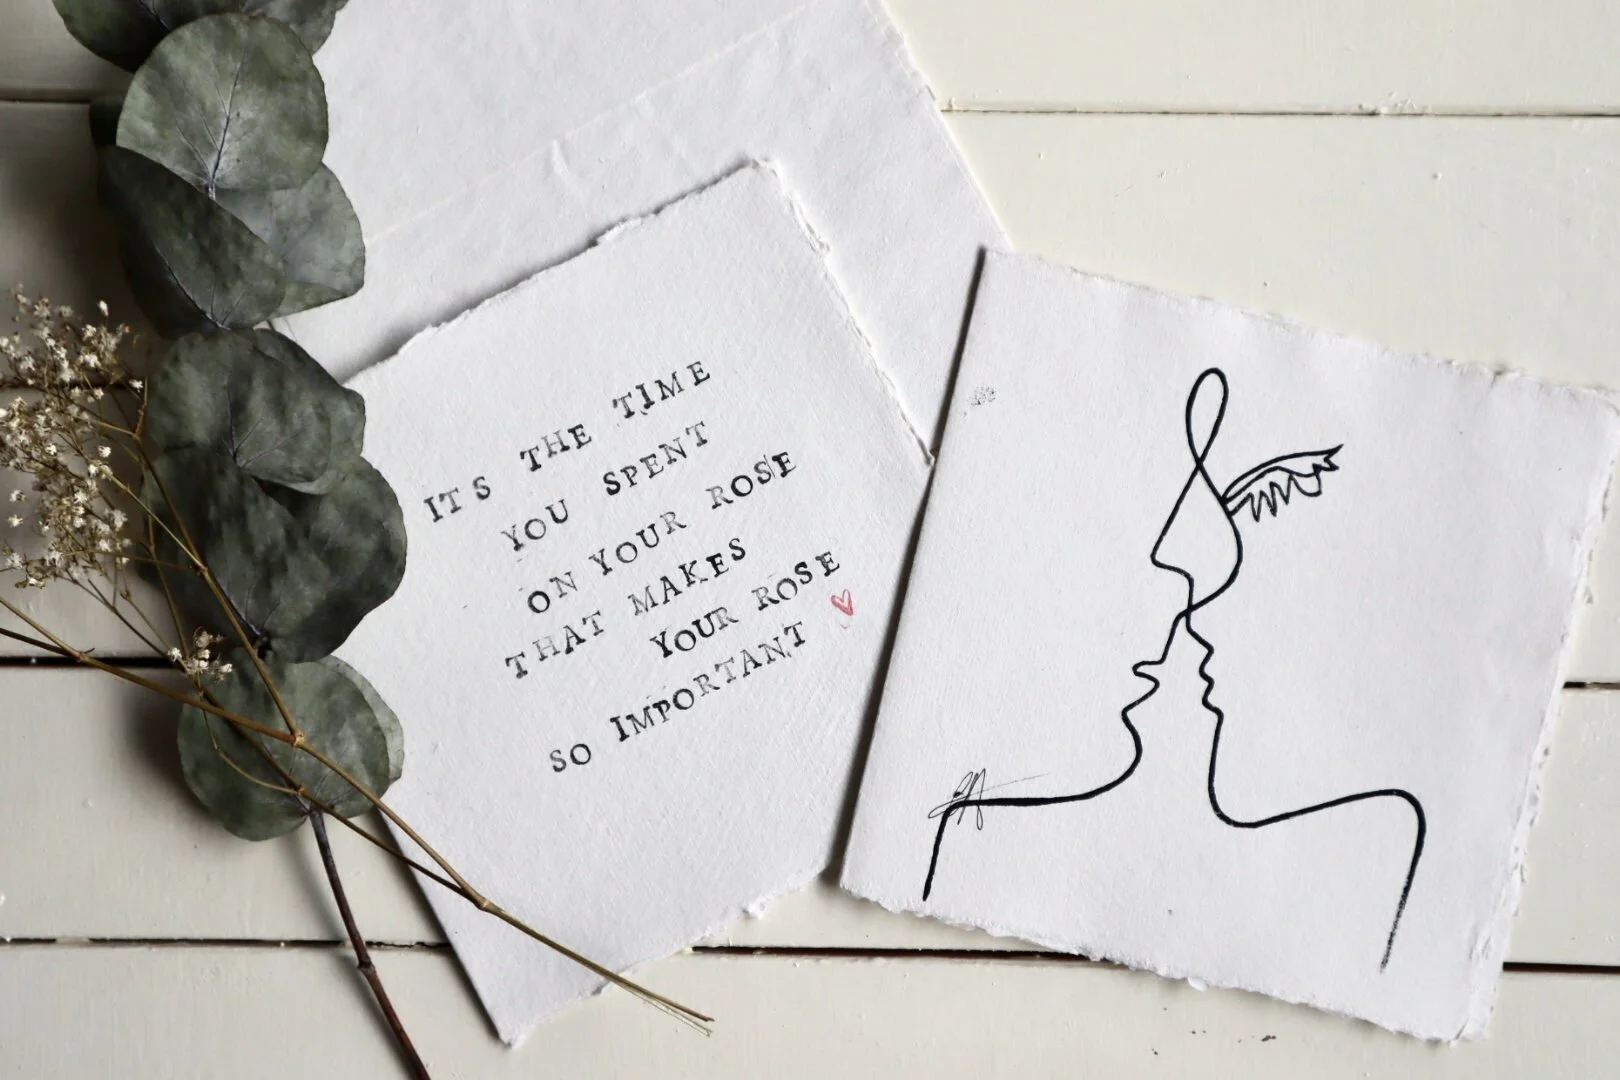 ITS THE TIME
YOU SPENT
ON YOUR ROSE
THAT MAKES
YOUR ROSE
SO IMPORTANT